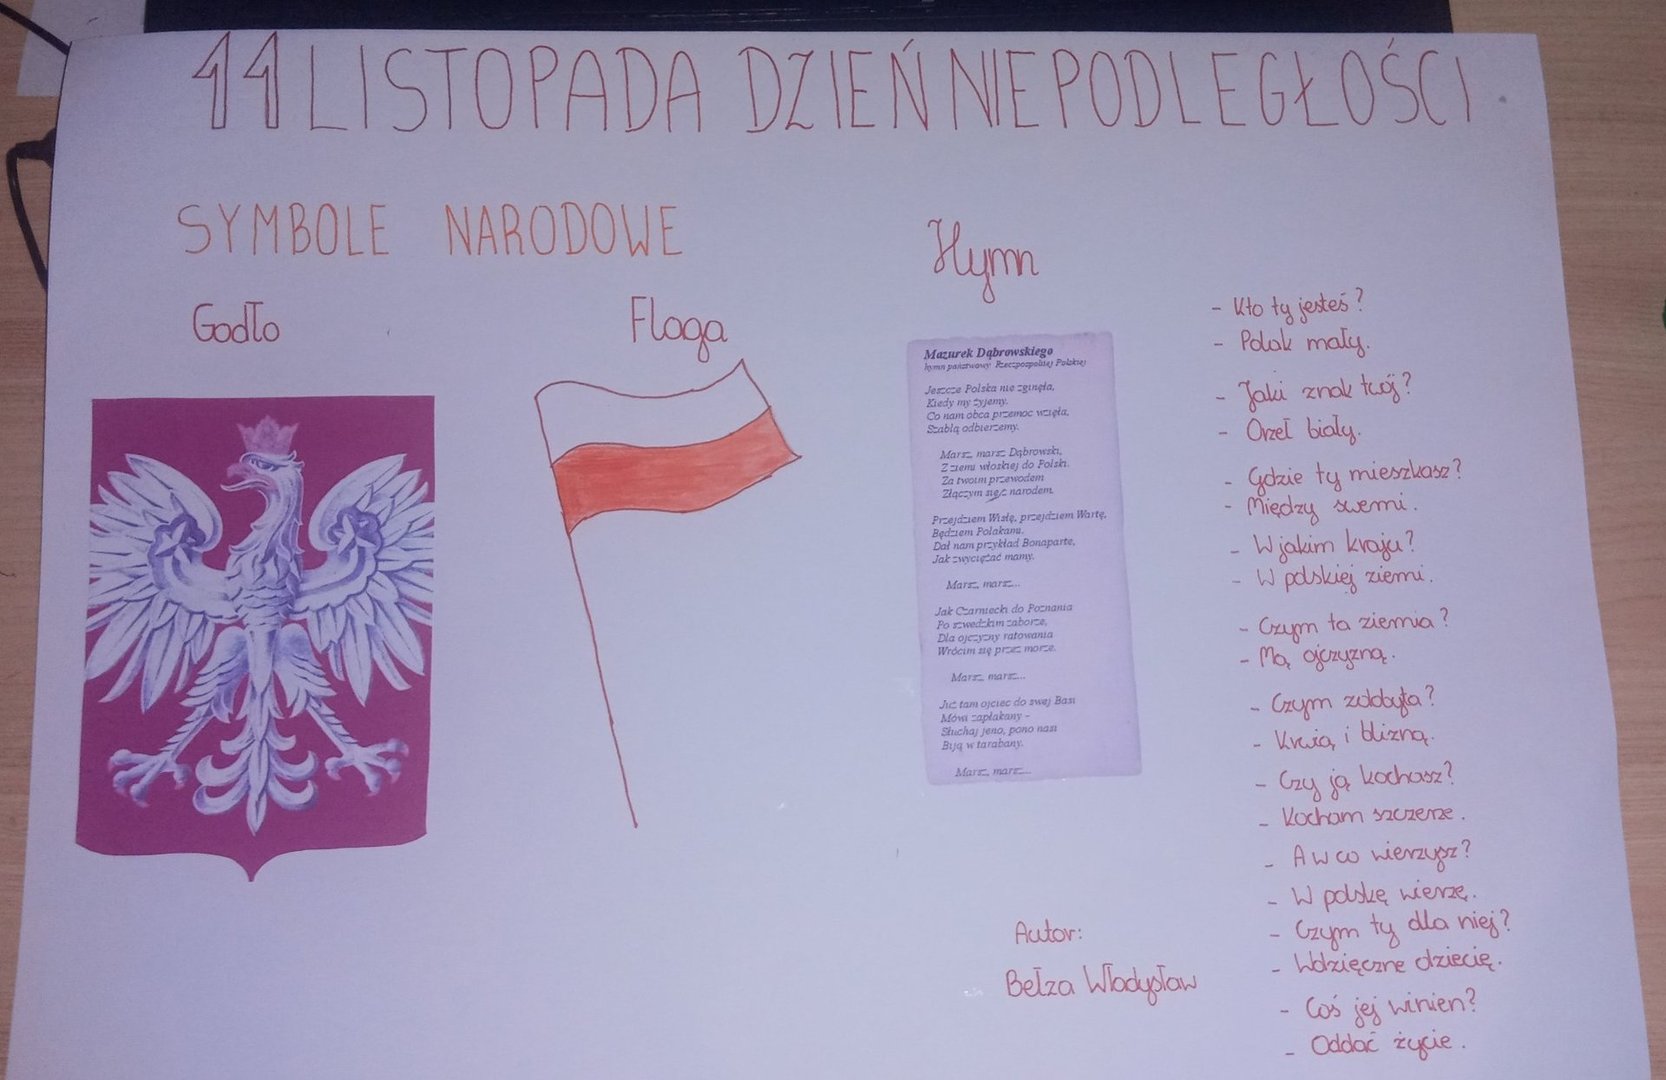 11 LISTOPADA DZIEŃ NIEPODLEGŁOŚCI
SYMBOLE NARODOWE
Godło
Flaga
Hymn
Mazurek Dąbrowskiego
hymn państwowy Rzeczpospolitej Polskiej
Jeszcze Polska nie zginęła,
Kiedy my żyjemy.
Co nam obca przemoc wzięła,
Szablą odbierzemy.
Marsz, marsz Dąbrowski,
Z ziemi włoskiej do Polski.
Za twoim przewodem
Złączym się z narodem.
Przejdziem Wisłę, przejdziem Wartę,
Będziem Polakami.
Dał nam przykład Bonaparte,
Jak zwyciężać mamy.
Marsz, marsz...
Jak Czarniecki do Poznania
Po szwedzkim zaborze,
Dla ojczyzny ratowania
Wrócim się przez morze.
Marsz, marsz...
Już tam ojciec do swej Basi
Mówi zapłakany -
Słuchaj jeno, pono nasi
Biją w tarabany.
Marsz, marsz...
- Kto ty jesteś?
- Polak mały.
- Jaki znak twój?
- Orzeł biały.
- Gdzie ty mieszkasz?
- Między swemi.
- W jakim kraju?
- W polskiej ziemi.
- Czym ta ziemia?
- Mą ojczyzną.
- Czym zdobyta?
- Krwią i blizną.
- Czy ją kochasz?
- Kocham szczerze.
- A w co wierzysz?
- W polskę wierzę.
- Czym ty dla niej?
- Wdzięczne dziecię.
- Coś jej winien?
- Oddać życie.
Autor:
Bełza Władysław